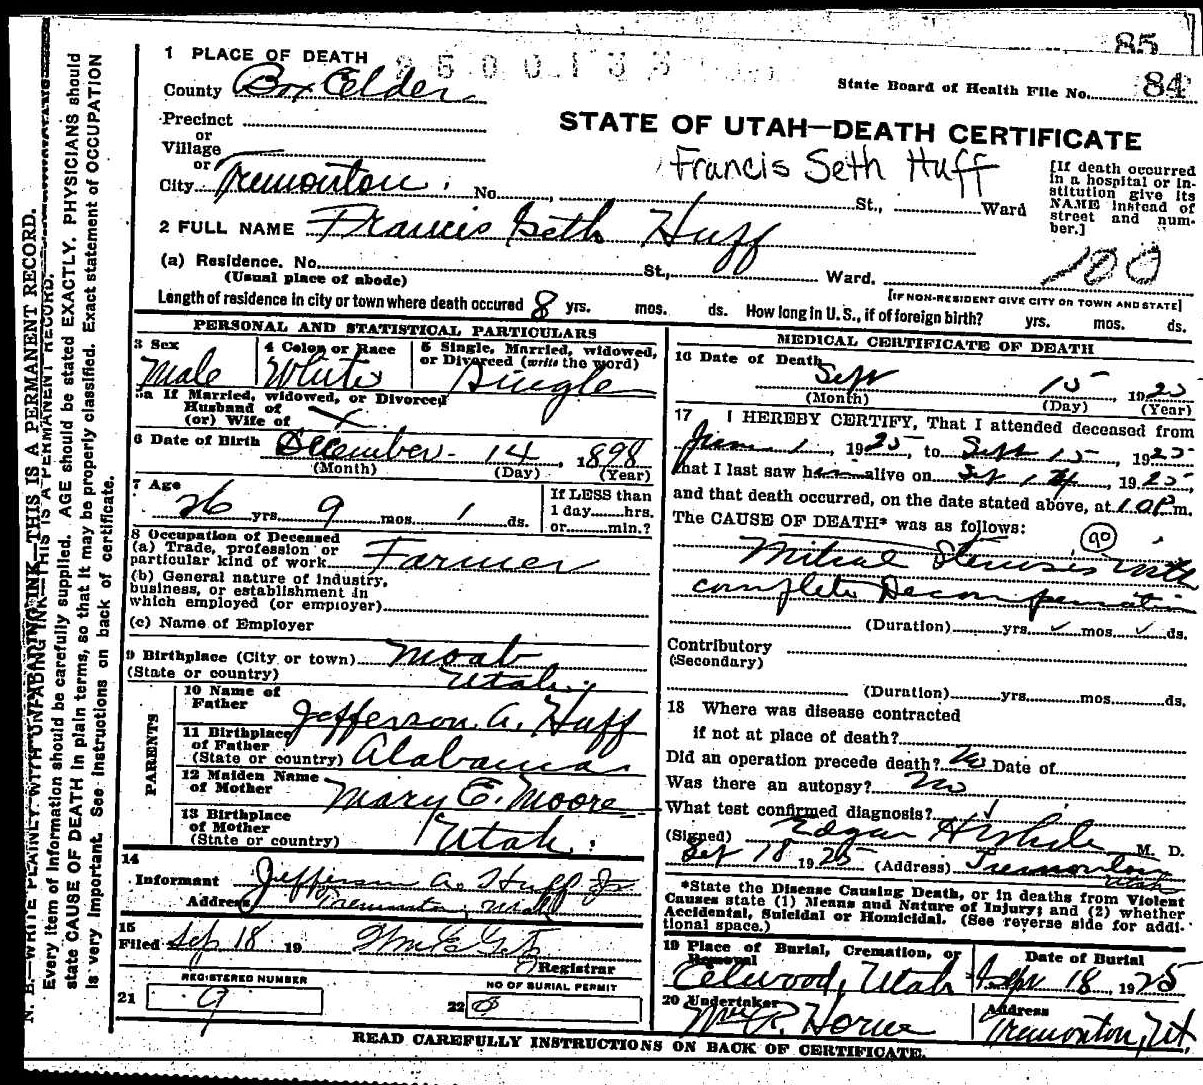 85
1 PLACE OF DEATH
State Board of Health File No. 84
County Box Elder
STATE OF UTAH—DEATH CERTIFICATE
Precinct
or
Village
or
Francis Seth Huff
City Tremonton. No. St., Ward
[If death occurred in a hospital or institution give its NAME instead of street and number.]
2 FULL NAME Francis Seth Huff
100
(a) Residence. No. St., Ward.
(Usual place of abode)
[IF NON-RESIDENT GIVE CITY OR TOWN AND STATE]
Length of residence in city or town where death occured 8 yrs. mos. ds. How long in U. S., if of foreign birth? yrs. mos. ds.
PERSONAL AND STATISTICAL PARTICULARS
3 Sex Male
4 Color or Race White
5 Single, Married, widowed, or Divorced (write the word) Single
5a If Married, widowed, or Divorced
Husband of
(or) Wife of X
6 Date of Birth December 14, 1898
(Month) (Day) (Year)
7 Age
26 yrs. 9 mos. 1 ds.
If LESS than
1 day......hrs.
or......min.?
8 Occupation of Deceased
(a) Trade, profession or
particular kind of work Farmer
(b) General nature of Industry,
business, or establishment in
which employed (or employer)
(c) Name of Employer
9 Birthplace (City or town) Moab
(State or country) Utah.
PARENTS
10 Name of Father Jefferson A. Huff
11 Birthplace of Father (State or country) Alabama
12 Maiden Name of Mother Mary E. Moore
13 Birthplace of Mother (State or country) Utah.
14
Informant Jefferson A. Huff Jr
Address Tremonton, Utah
15
Filed Sep 18 19 Wm E Getz
Registrar
REGISTERED NUMBER
21 9
NO OF BURIAL PERMIT
22 8
MEDICAL CERTIFICATE OF DEATH
16 Date of Death Sept 15 1925
(Month) (Day) (Year)
17 I HEREBY CERTIFY, That I attended deceased from
June 1, 1925, to Sept 15, 1925
that I last saw him alive on Sep 14, 1925,
and that death occurred, on the date stated above, at 1.0P m.
The CAUSE OF DEATH* was as follows:
90
Mitral Stenosis with
complete Decompensation
(Duration) yrs. mos. ds.
Contributory
(Secondary)
(Duration) yrs. mos. ds.
18 Where was disease contracted
if not at place of death?
Did an operation precede death? No Date of
Was there an autopsy? No
What test confirmed diagnosis?
(Signed) Edgar H White M. D.
Sep 18 1925 (Address) Tremonton Utah
*State the Disease Causing Death, or in deaths from Violent
Causes state (1) Means and Nature of Injury; and (2) whether
Accidental, Suicidal or Homicidal. (See reverse side for additional space.)
19 Place of Burial, Cremation, or Removal
Elwood, Utah
Date of Burial
Sep 18, 1925
20 Undertaker
Wm R. Horne
Address
Tremonton, Ut.
READ CAREFULLY INSTRUCTIONS ON BACK OF CERTIFICATE.
N. B.—WRITE PLAINLY WITH UNFADING INK—THIS IS A PERMANENT RECORD.
Every item of information should be carefully supplied. AGE should be stated EXACTLY. PHYSICIANS should
state CAUSE OF DEATH in plain terms, so that it may be properly classified. Exact statement of OCCUPATION
is very important. See instructions on back of certificate.